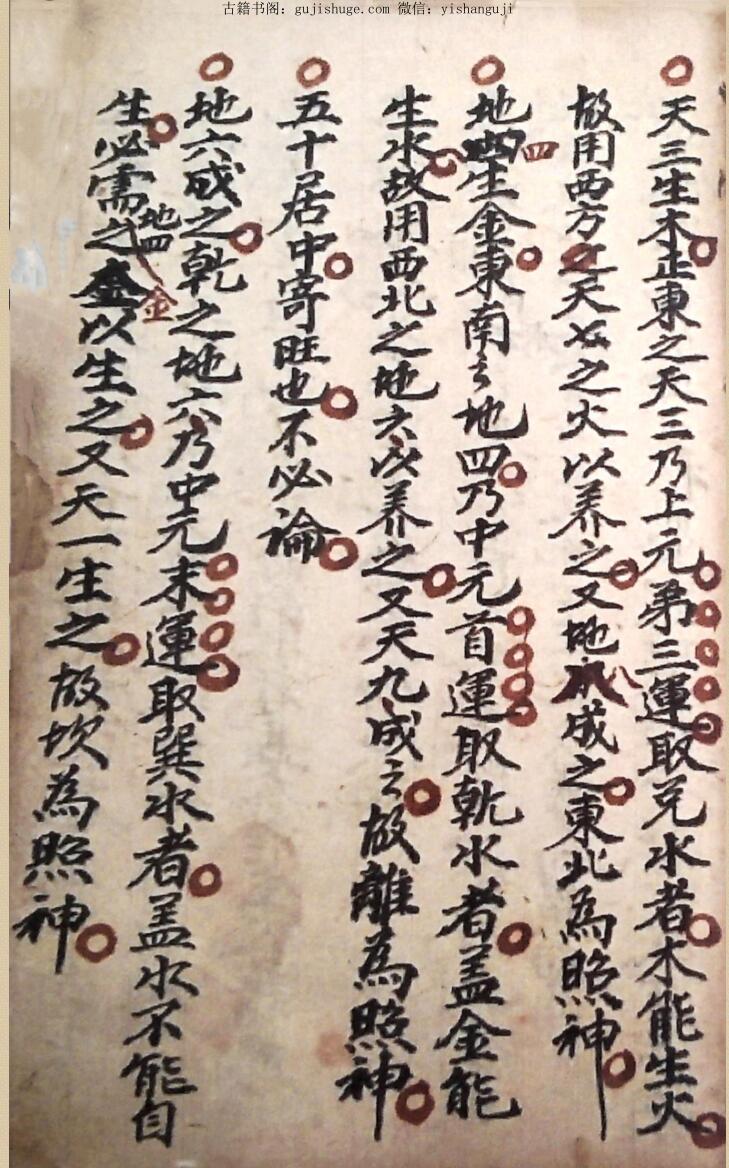 古籍书阁：gujishuge.com 微信：yishanguji
天三生木正東之天三乃上元第三運取兌水者木能生火
故用西方之天七之火以养之又地八成之東北為照神
地四生金東南之地四乃中元首運取乾水者盖金能
生水故用西北之地六以养之又天九成之故離為照神
五十居中寄旺也不必論
地六成之乾之地六乃中元末運取巽水者盖水不能自
生必需之地四金以生之又天一生之故坎為照神